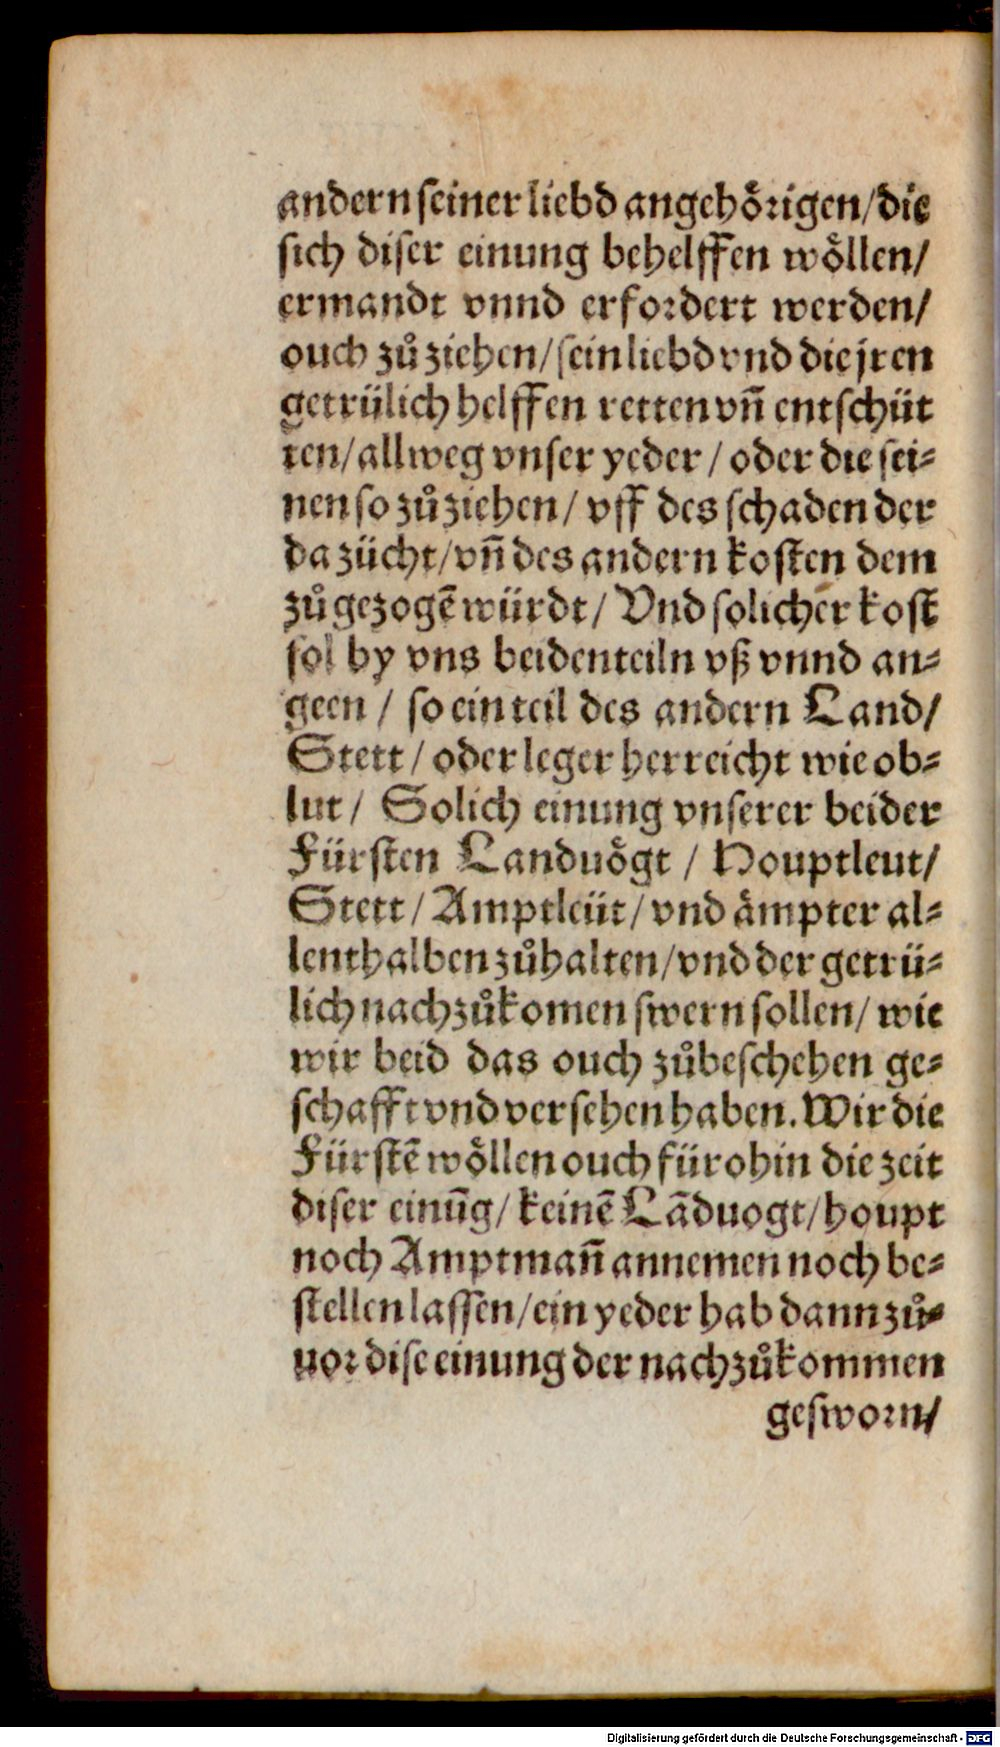 andern seiner liebd angehoͤrigen/die
sich diser einung behelffen woͤllen/
ermandt vnnd erfordert werden/
ouch zuͦ ziehen/sein liebd vnd die jren
getrülich helffen retten vn̄ entschüt
ten/allweg vnser yeder/oder die sei⸗
nen so zuͦziehen/vff des schaden der
da zücht/vn̄ des andern kosten dem
zuͦgezogē würdt/Vnd solicher kost
sol by vns beidenteiln vß vnnd an⸗
geen/so ein teil des andern Land/
Stett/oder leger herreicht wie ob⸗
lut/Solich einung vnserer beider
Fürsten Landuoͤgt/Houptleut/
Stett/Amptleüt/vnd aͤmpter al⸗
lenthalben zuͦhalten/vnd der getrü⸗
lich nachzuͦkomen swern sollen/wie
wir beid das ouch zuͦbeschehen ge⸗
schafft vnd versehen haben. Wir die
Fürstē woͤllen ouch fürohin die zeit
diser einūg/keinē Lāduogt/houpt
noch Amptman̄ annemen noch be⸗
stellen lassen/ein yeder hab dann zuͦ⸗
uor dise einung der nachzuͦkommen
gesworn/
Digitalisierung gefördert durch die Deutsche Forschungsgemeinschaft - DFG